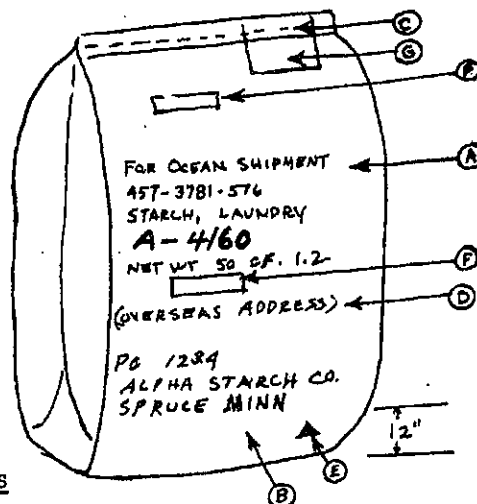 C
G
F
FOR OCEAN SHIPMENT
A
457-3781-576
STARCH, LAUNDRY
A-4160
NET WT 50 CF. 1.2
F
(OVERSEAS ADDRESS)
D
PO 1234
ALPHA STARCH CO.
SPRUCE MINN
12"
E
B
S